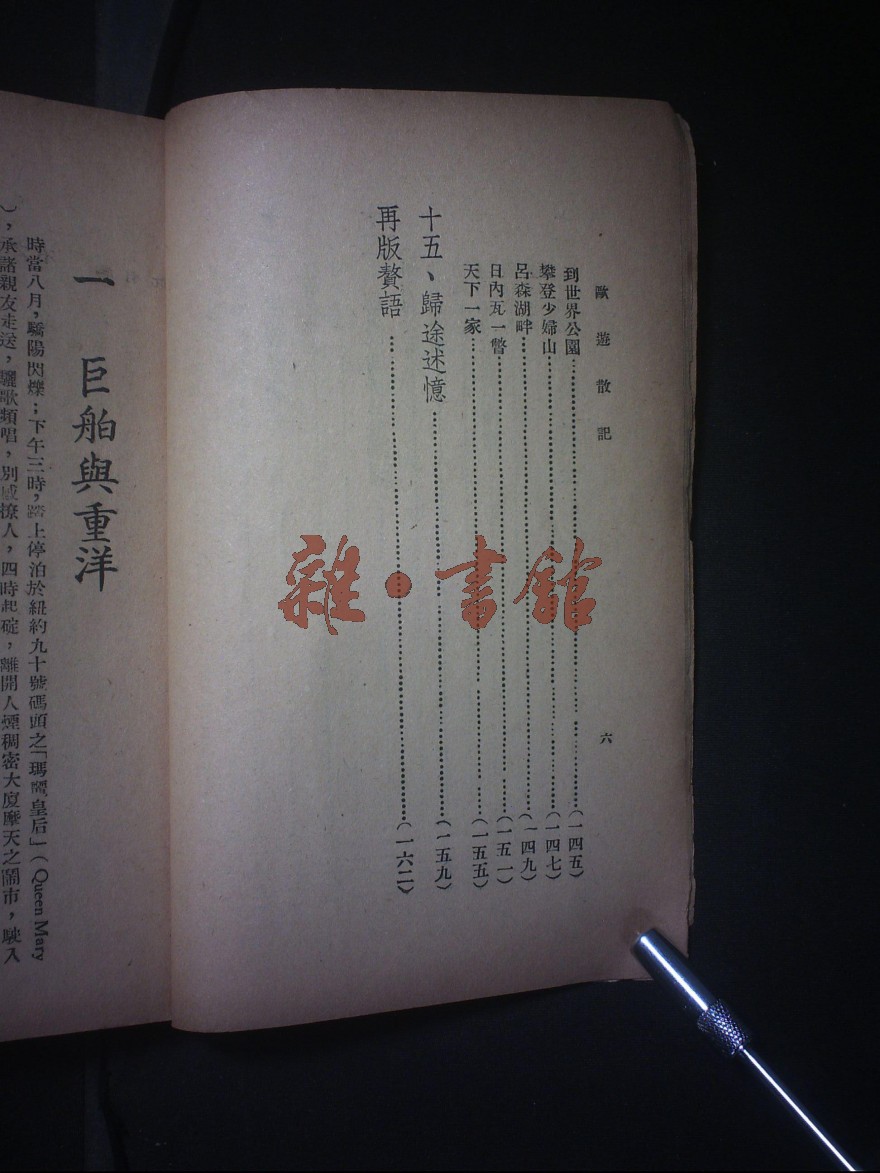 歐遊散記
六
到世界公園……(一四五)
攀登少婦山……(一四七)
呂森湖畔……(一四九)
日內瓦一瞥……(一五一)
天下一家……(一五五)
十五、歸途述憶……(一五九)
再版贅語……(一六二)
一 巨舶與重洋
時當八月，驕陽閃爍；下午三時，踏上停泊於紐約九十號碼頭之「瑪麗皇后」（Queen Mary
），承諸親友走送，驪歌頻唱，別感撩人，四時起碇，離開人煙稠密大廈摩天之鬧市，駛入
雜·書館